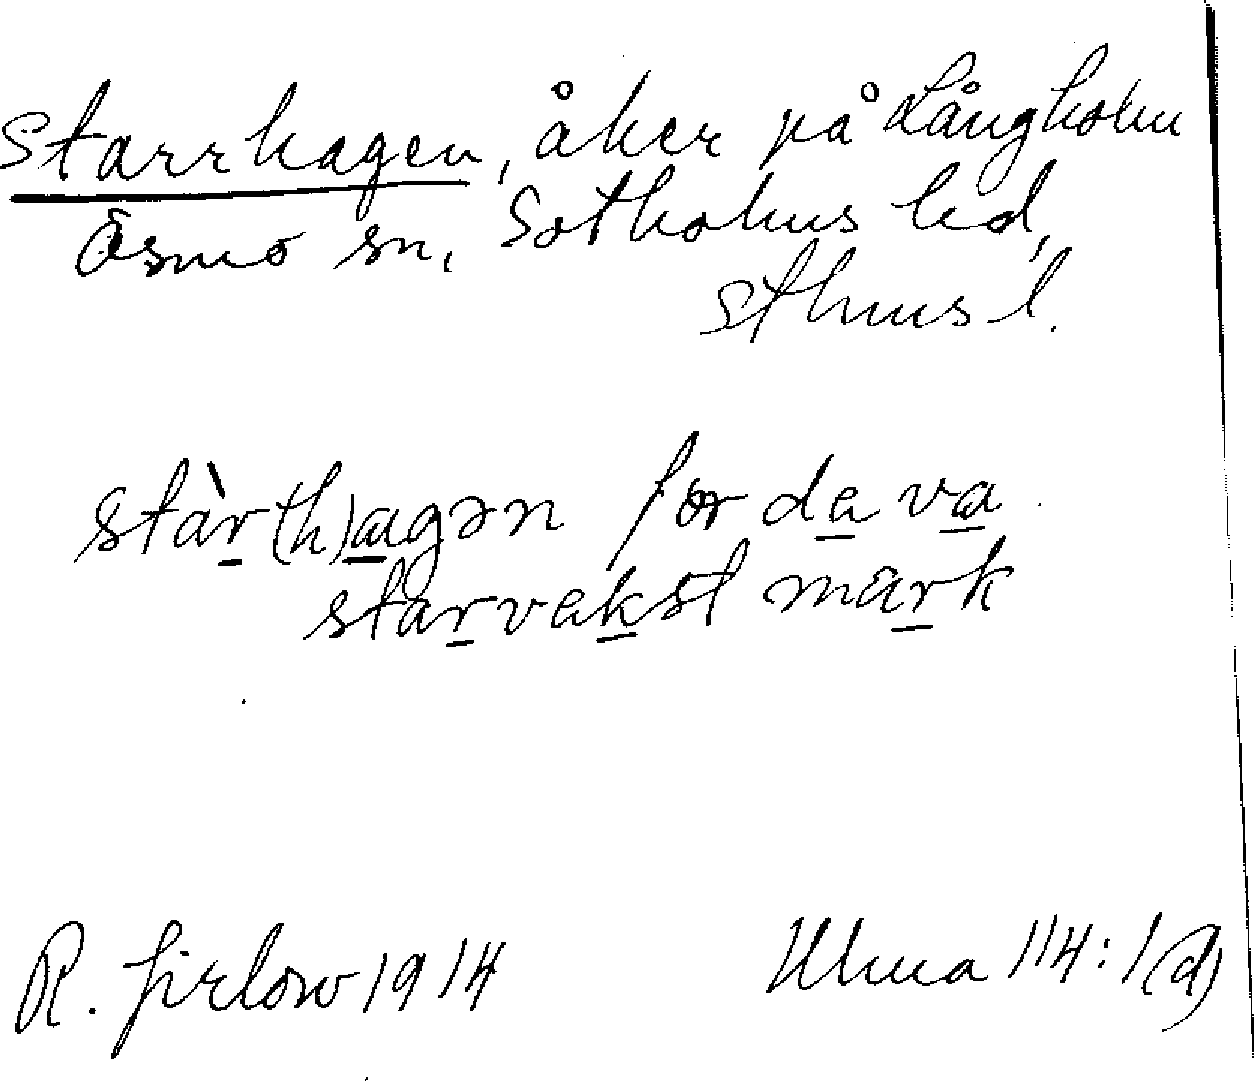 Starrhagen, åker på Långholm
Ösmo sn, Sotholms hd,
Sthms l.
stàr(h)agən for da va
starvakst mark
R. Jirlow 1914 Ulma 114:1(d)